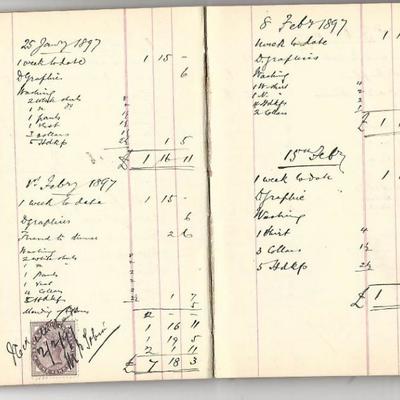 25 Jany 1897
1 week to date 1 15 -
D. graphics 6
Washing
2 White shirts
1 n
1 pants
1 Vest
3 collars
5 Hdkfs 1 5
£ 1 16 11
1st Febry 1897
1 week to date 1 15 -
D graphics 6
2 6
Washing
2 White shirts
1 n
1 Pants
1 Vest
4 Collars
5 Hdkfs 1 7
5
2 - -
1 16 11
1 19 5
2 1 11
£ 7 18 3
8 Feby 1897
1 week to date 1
D. graphics
Washing
1 W. shirt
1 N.
4 Hdkfs
2 Collars
£ 1
15th Feby
1 week to date 1
D. graphic
Washing
1 Shirt 4
3 Collars 1½
5 Hdkfs 2½
£ 1